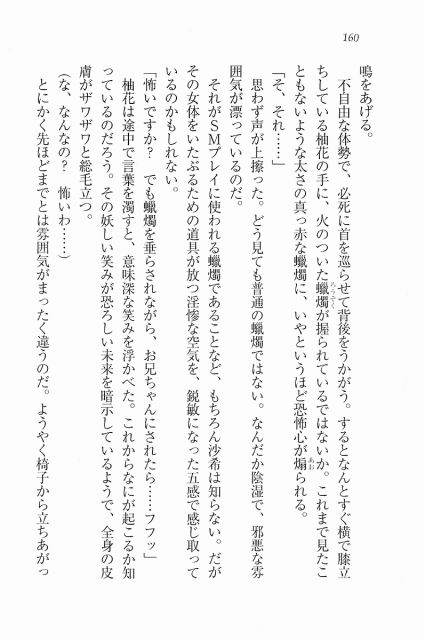 160
鳴をあげる。
　不自由な体勢で、必死に首を巡らせて背後をうかがう。するとなんとすぐ横で膝立
ちしている柚花の手に、火のついた蠟燭が握られているではないか。これまで見たこ
ともないような太さの真っ赤な蠟燭に、いやというほど恐怖心が煽られる。
「そ、それ……」
　思わず声が上擦った。どう見ても普通の蠟燭ではない。なんだか陰湿で、邪悪な雰
囲気が漂っているのだ。
　それがＳＭプレイに使われる蠟燭であることなど、もちろん沙希は知らない。だが
その女体をいたぶるための道具が放つ淫惨な空気を、鋭敏になった五感で感じ取って
いるのかもしれない。
「怖いですか？　でも蠟燭を垂らされながら、お兄ちゃんにされたら……フフッ」
　柚花は途中で言葉を濁すと、意味深な笑みを浮かべた。これからなにが起こるか知
っているのだろう。その妖しい笑みが恐ろしい未来を暗示しているようで、全身の皮
膚がザワザワと総毛立つ。
（な、なんなの？　怖いわ……）
　とにかく先ほどまでとは雰囲気がまったく違うのだ。ようやく椅子から立ちあがっ